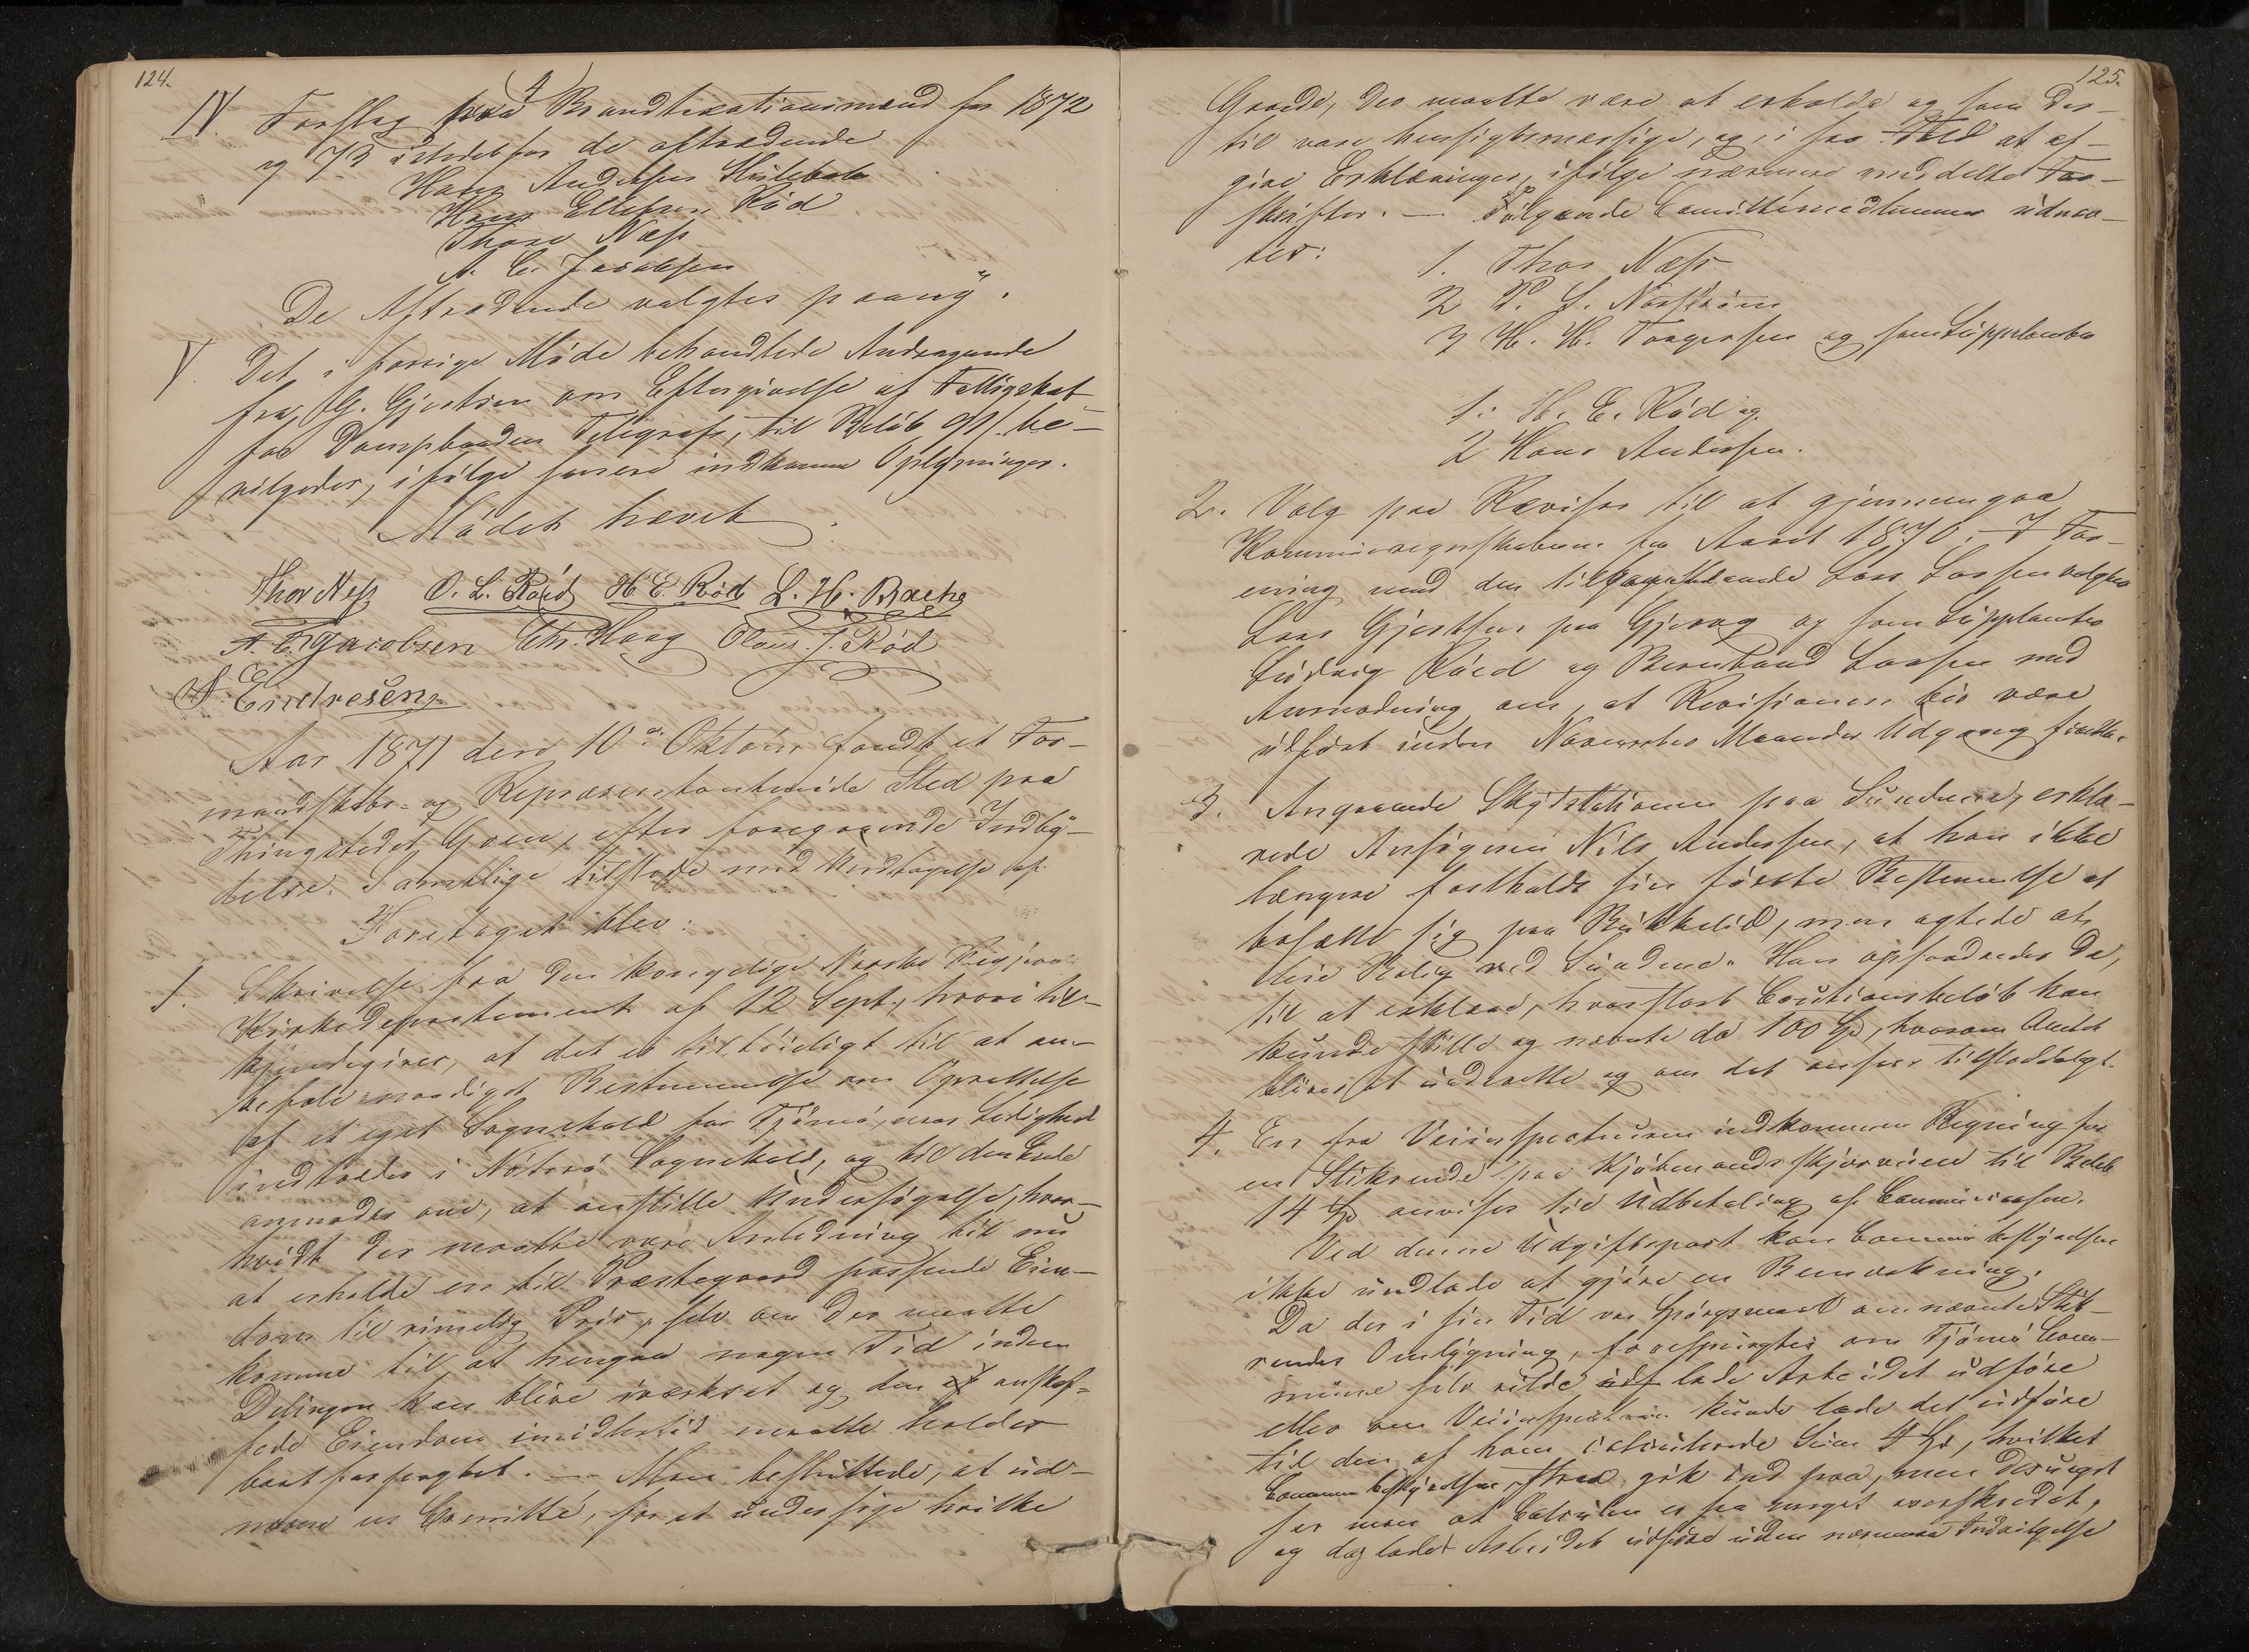 124.
IV. Forslag paa 4 Brandtaxationsmænd for 1872
og 73 istedetfor de aftrædende
Hans Andersen
Hans Ellefsen Rød
Thore Næss
A. C. Jacobsen
De Aftrædende valgtes paany.
V. Det i forrige Møde behandlede Andragende
fra G. Gjertsen om Eftergivelse af Fattigskat
for Dampbaaden Telegraf, til Beløb be-
vilgedes, ifølge senere indkomne Oplysninger.
Mødet hævet.
Thor Næss O. L. Røed H. E. Rød L. H. Bache
A. C. Jacobsen Chr. Haag Claus J. Rød
Endresen
Aar 1871 den 10de Oktober fandt et For-
mandskabs- og Repræsentantmøde Sted paa
Thingstedet Grøen, efter foregaaende Indby-
delse. Samtlige tilstede med Undtagelse af
Foretaget blev:
1. Skrivelse fra den kongelige Norske Regjer
Kirkedepartement af 12 Sept., hvori til-
kjendegives, at det er tilbøieligt til at an-
befale naadigst Bestemmelse om Oprettelse
af et eget Sognekald for Tjømø, naar Ledighed
indtræder i Nøterø Sognekald, og til den Ende
anmodes om, at anstille Undersøgelse, hvor-
vidt der maatte være Anledning til nu
at erholde en til Præstegaard passende Eien-
dom til rimelig Pris, selv om der maatte
komme til at hengaa nogen Tid inden
Delingen kan blive iværksat og den anskaf-
fede Eiendom imidlertid maatte holdes
bortforpagtet. — Man besluttede, at ud-
nævne en Comitte, for at undersøge hvilke
125.
Gaarde, der maatte være at erholde og som der-
til vare hensigtsmæssige, og i saa Fald at af-
give Erklæringer, ifølge nærmere meddelte For-
skrifter. — Følgende Comittemedlemmer udnæv-
tes:
1. Thor Næss
2 P. L. Norstrøm
3 H. H. Torgersen og som Supplanter
1. H. E. Rød og
2 Hans Andersen.
2. Valg paa Revisor til at gjennemgaa
Kommuneregnskaberne for Aaret 1870. I For-
ening med den tilbagestaaende Lars Larsen valgtes
Lars Gjertsen paa Gjervaag og som Supplanter
Ludvig Røed og Bernhard Larsen med
Anmodning om, at Revisionen bør være
udført inden November Maaneds Udgang førstk.
3. Angaaende Skydsstationen paa Sundene, erklæ-
rede Ansøgeren Nils Andersen, at han ikke
længere fastholdt sin første Bestemmelse at
bosætte sig paa Bukkelid, men agtede at
leie Bolig ved Sundene. Han opfordredes da,
til at erklære, hvorstort Cautionsbeløb han
kunde stille og nævnte da 100 Spd, hvorom Amtet
bliver at underrette og om det ansees tilstrækkeligt.
4. En fra Veiinspecteuren indkommen Regning for
en Stikrende paa Kjøbmandsskjærveien til Beløb
14 Spd anvises til Udbetaling af Communecassen.
Ved denne Udgiftspost kan Communebestyrelsen
ikke undlade at gjøre en Bemærkning.
Da der i sin Tid var Spørgsmaal om nævnte Stik-
rendes Omlægning, forespurgtes om Tjømø Com-
mune selv vilde lade Arbeidet udføre
eller om Veiinspecteuren kunde lade det udføre
til den af ham calculerede Sum 4 Spd, hvilket
Communebestyrelsen strax gik ind paa, men desuagt
ser man at Calculen er saa meget overskredet,
og dog ladet Arbeidet udføre uden nærmere Indvilgelse